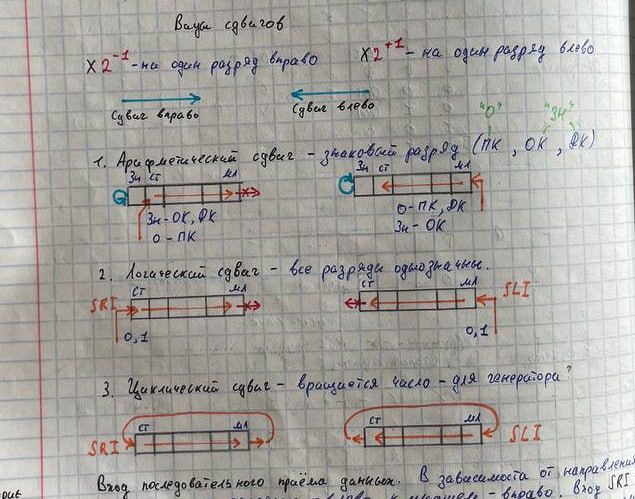 Виды сдвигов
X2⁻¹ - на один разряд вправо
X2⁺¹ - на один разряд влево
Сдвиг вправо
Сдвиг влево
"0" "Зн"
1. Арифметический сдвиг - знаковый разряд (ПК, ОК, ДК)
Зн СТ МЛ
Зн СТ МЛ
Зн - ОК, ДК
0 - ПК
0 - ПК, ДК
Зн - ОК
2. Логический сдвиг - все разряды однозначны.
SRI СТ МЛ
СТ МЛ SLI
0,1
0,1
3. Циклический сдвиг - вращается число - для генератора?
СТ МЛ
СТ МЛ
SRI
SLI
Вход последовательного приёма данных. В зависимоста от направления
- вправо. Вход SRI